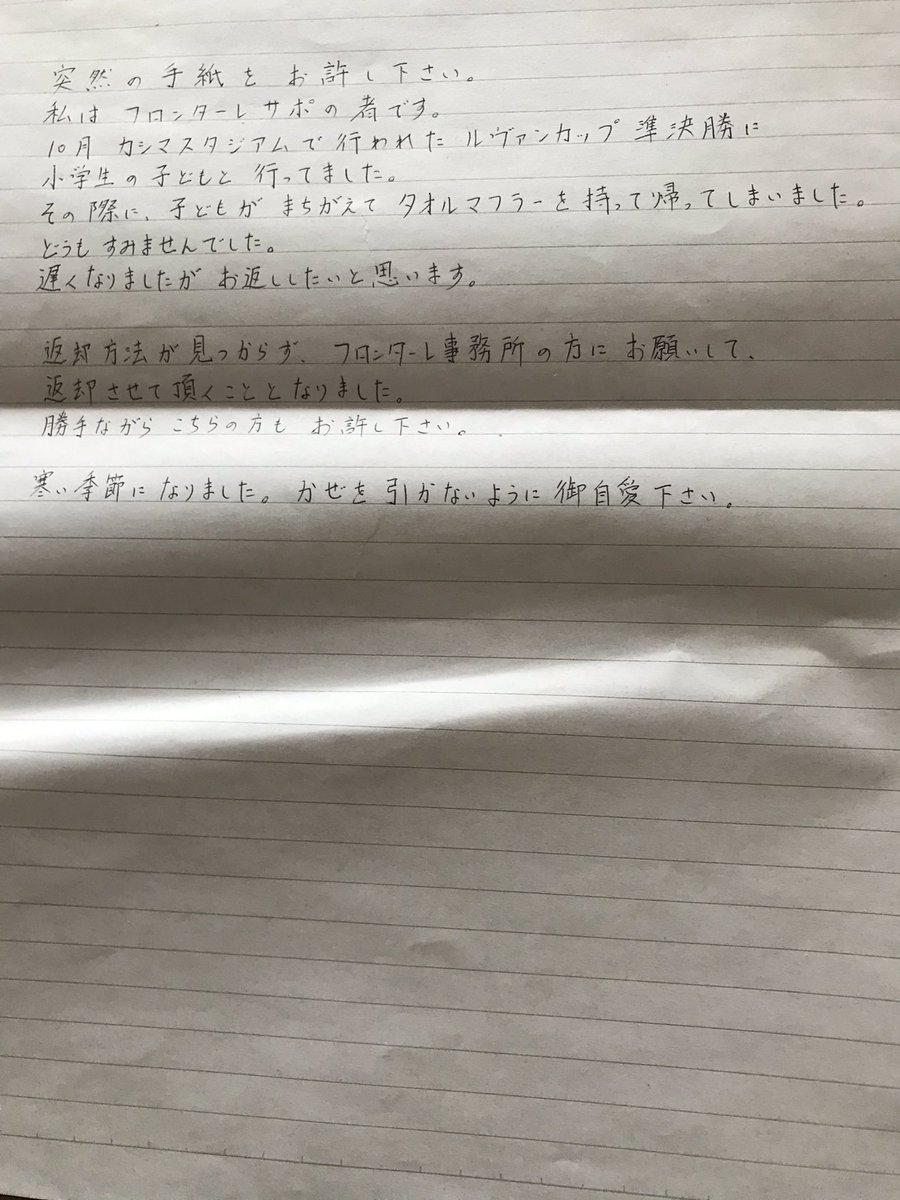 突然の手紙をお許し下さい。
私はフロンターレサポの者です。
10月カシマスタジアムで行われたルヴァンカップ準決勝に
小学生の子どもと行ってました。
その際に、子どもがまちがえてタオルマフラーを持って帰ってしまいました。
どうもすみませんでした。
遅くなりましたがお返ししたいと思います。
返却方法が見つからず、フロンターレ事務所の方にお願いして、
返却させて頂くこととなりました。
勝手ながらこちらの方もお許し下さい。
寒い季節になりました。かぜを引かないように御自愛下さい。